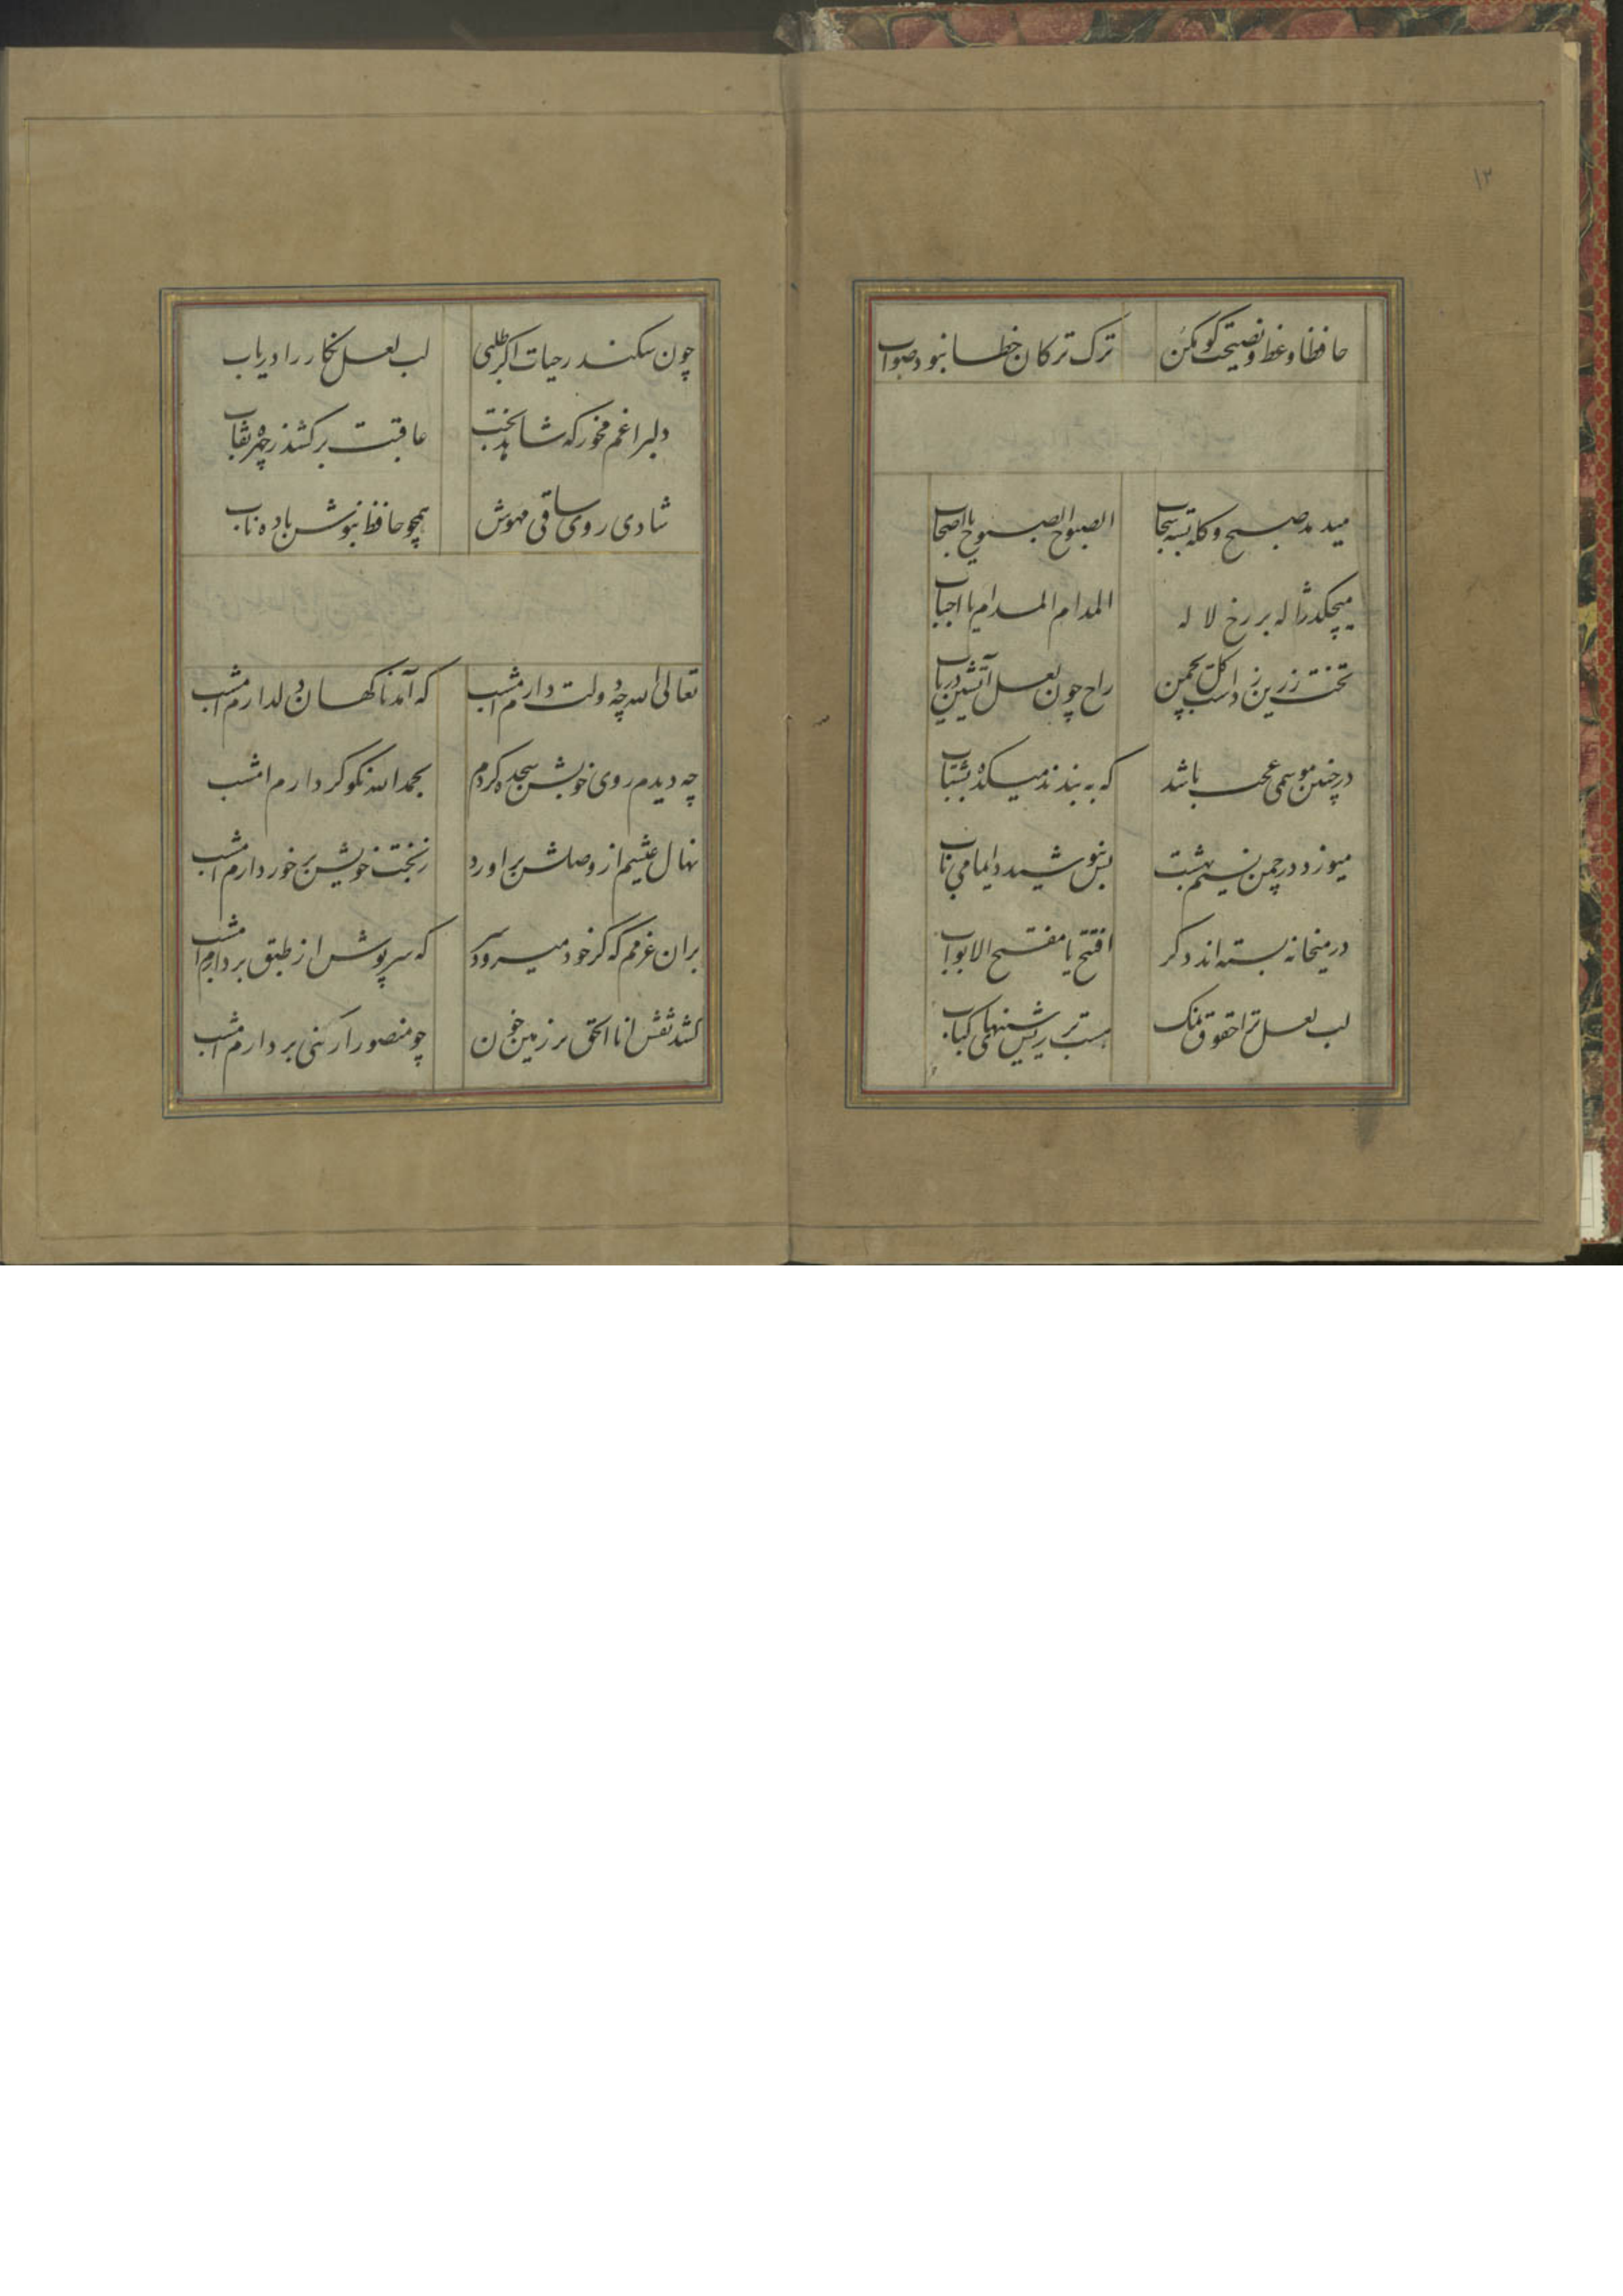 ۱۲
حافظا وعظ و نصیحت کو مکن ترک ترکان خطا نبود صواب
میدمد صبح و کله بسته سحاب الصبوح الصبوح یا اصحاب
میچکد ژاله بر رخ لاله المدام المدام یا احباب
تخت زرین زداست گل بچمن راح چون لعل آتشین دریاب
در چنین موسمی عجب باشد که به بندند میکده بشتاب
میوزد در چمن نسیم بهشت بنوشید دایما می ناب
در میخانه بسته اند دگر افتتح یا مفتح الابواب
لب لعل ترا حقوق نمک هست بر ریش سینهای کباب
چون سکندر حیات اگر طلبی لب لعل نگار را دریاب
دلبرا غم مخور که شاهد بخت عاقبت برکشد ز چهره نقاب
شادی روی ساقی مهوش همچو حافظ بنوش باده ناب
تعالی الله چه دولت دارم امشب که آمد ناکهان دلدارم امشب
چه دیدم روی خوبش سجده کردم بحمد الله نکو کردارم امشب
نهال عیشم از وصلش بر اورد ز بخت خویش برخوردارم امشب
بران عزمم که گر خود میرود سر که سرپوش از طبق بردارم امشب
کشد نقش انا الحق بر زمین خون چو منصور ار کشی بر دارم امشب